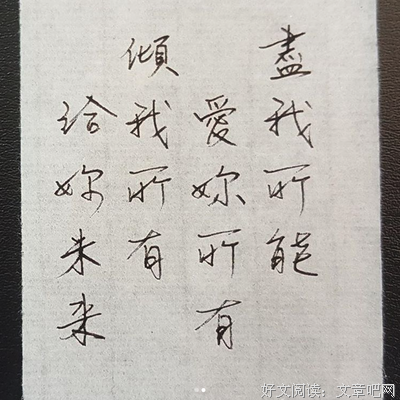 盡我所能
愛妳所有
傾我所有
給妳未来
好文阅读：文章吧网